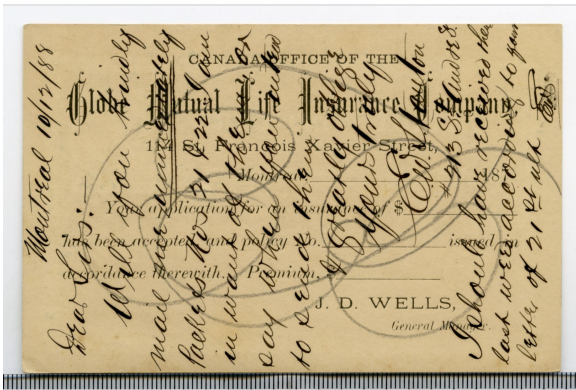 CANADA OFFICE OF THE
Globe Mutual Life Insurance Company,
114 St. François Xavier Street,
Montreal, 18
Your application for an insurance of $
has been accepted, and policy No. issued in
accordance therewith. Premium,
J. D. WELLS,
General Manager.
Montreal 10/12/88
Dear Sirs.
Will you kindly
mail me immediately
Packets No 21 & 22 I am
in want of them or
say when you intend
to send them
& greatly oblige
Yours truly
213 St
I should have received them
last week according to your
letter of 21st